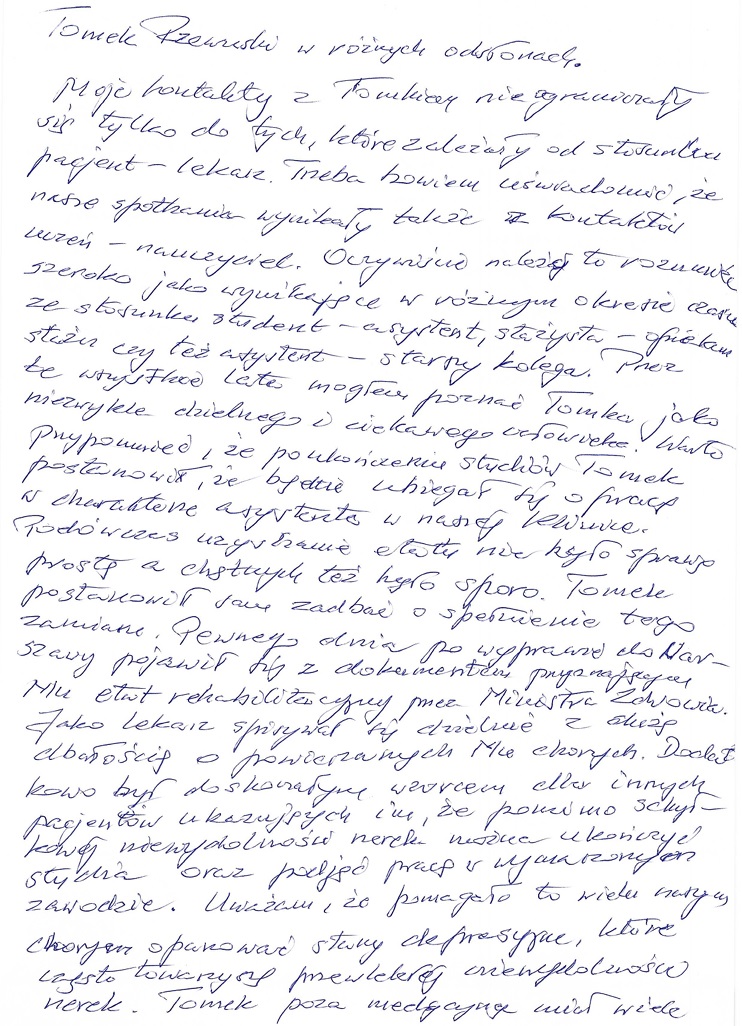 Tomek Rzewuski w różnych odsłonach.
Moje kontakty z Tomkiem nie ograniczały
się tylko do tych, które zależały od stosunku
pacjent – lekarz. Trzeba bowiem uświadomić, że
nasze spotkania wynikały także z kontaktów
uczeń – nauczyciel. Oczywiście należy to rozumieć
szeroko jako wynikające w różnym okresie czasu
ze stosunku student – asystent, stażysta – opiekun
stażu czy też asystent – starszy kolega. Przez
te wszystkie lata mogłem poznać Tomka, jako
niezwykle dzielnego i ciekawego człowieka. Warto
przypomnieć, że po ukończeniu studiów Tomek
postanowił, że będzie ubiegał się o pracę
w charakterze asystenta w naszej Klinice.
Podówczas uzyskanie etatu nie było sprawą
prostą a chętnych też było sporo. Tomek
postanowił sam zadbać o spełnienie tego
zamiaru. Pewnego dnia po wyprawie do War-
szawy pojawił się z dokumentem przyznającym
Mu etat rehabilitacyjny przez Ministra Zdrowia.
Jako lekarz spisywał się dzielnie z dużą
dbałością o powierzanych Mu chorych. Dodat
kowo był doskonałym wzorcem dla innych
pacjentów ukazujących im, że pomimo schył-
kowej niewydolności nerek można ukończyć
studia oraz podjąć pracę w wymarzonym
zawodzie. Uważam, że pomagało to wielu naszym
chorym opanować stany depresyjne, które
często towarzyszą przewlekłej niewydolności
nerek. Tomek poza medycyną miał wiele